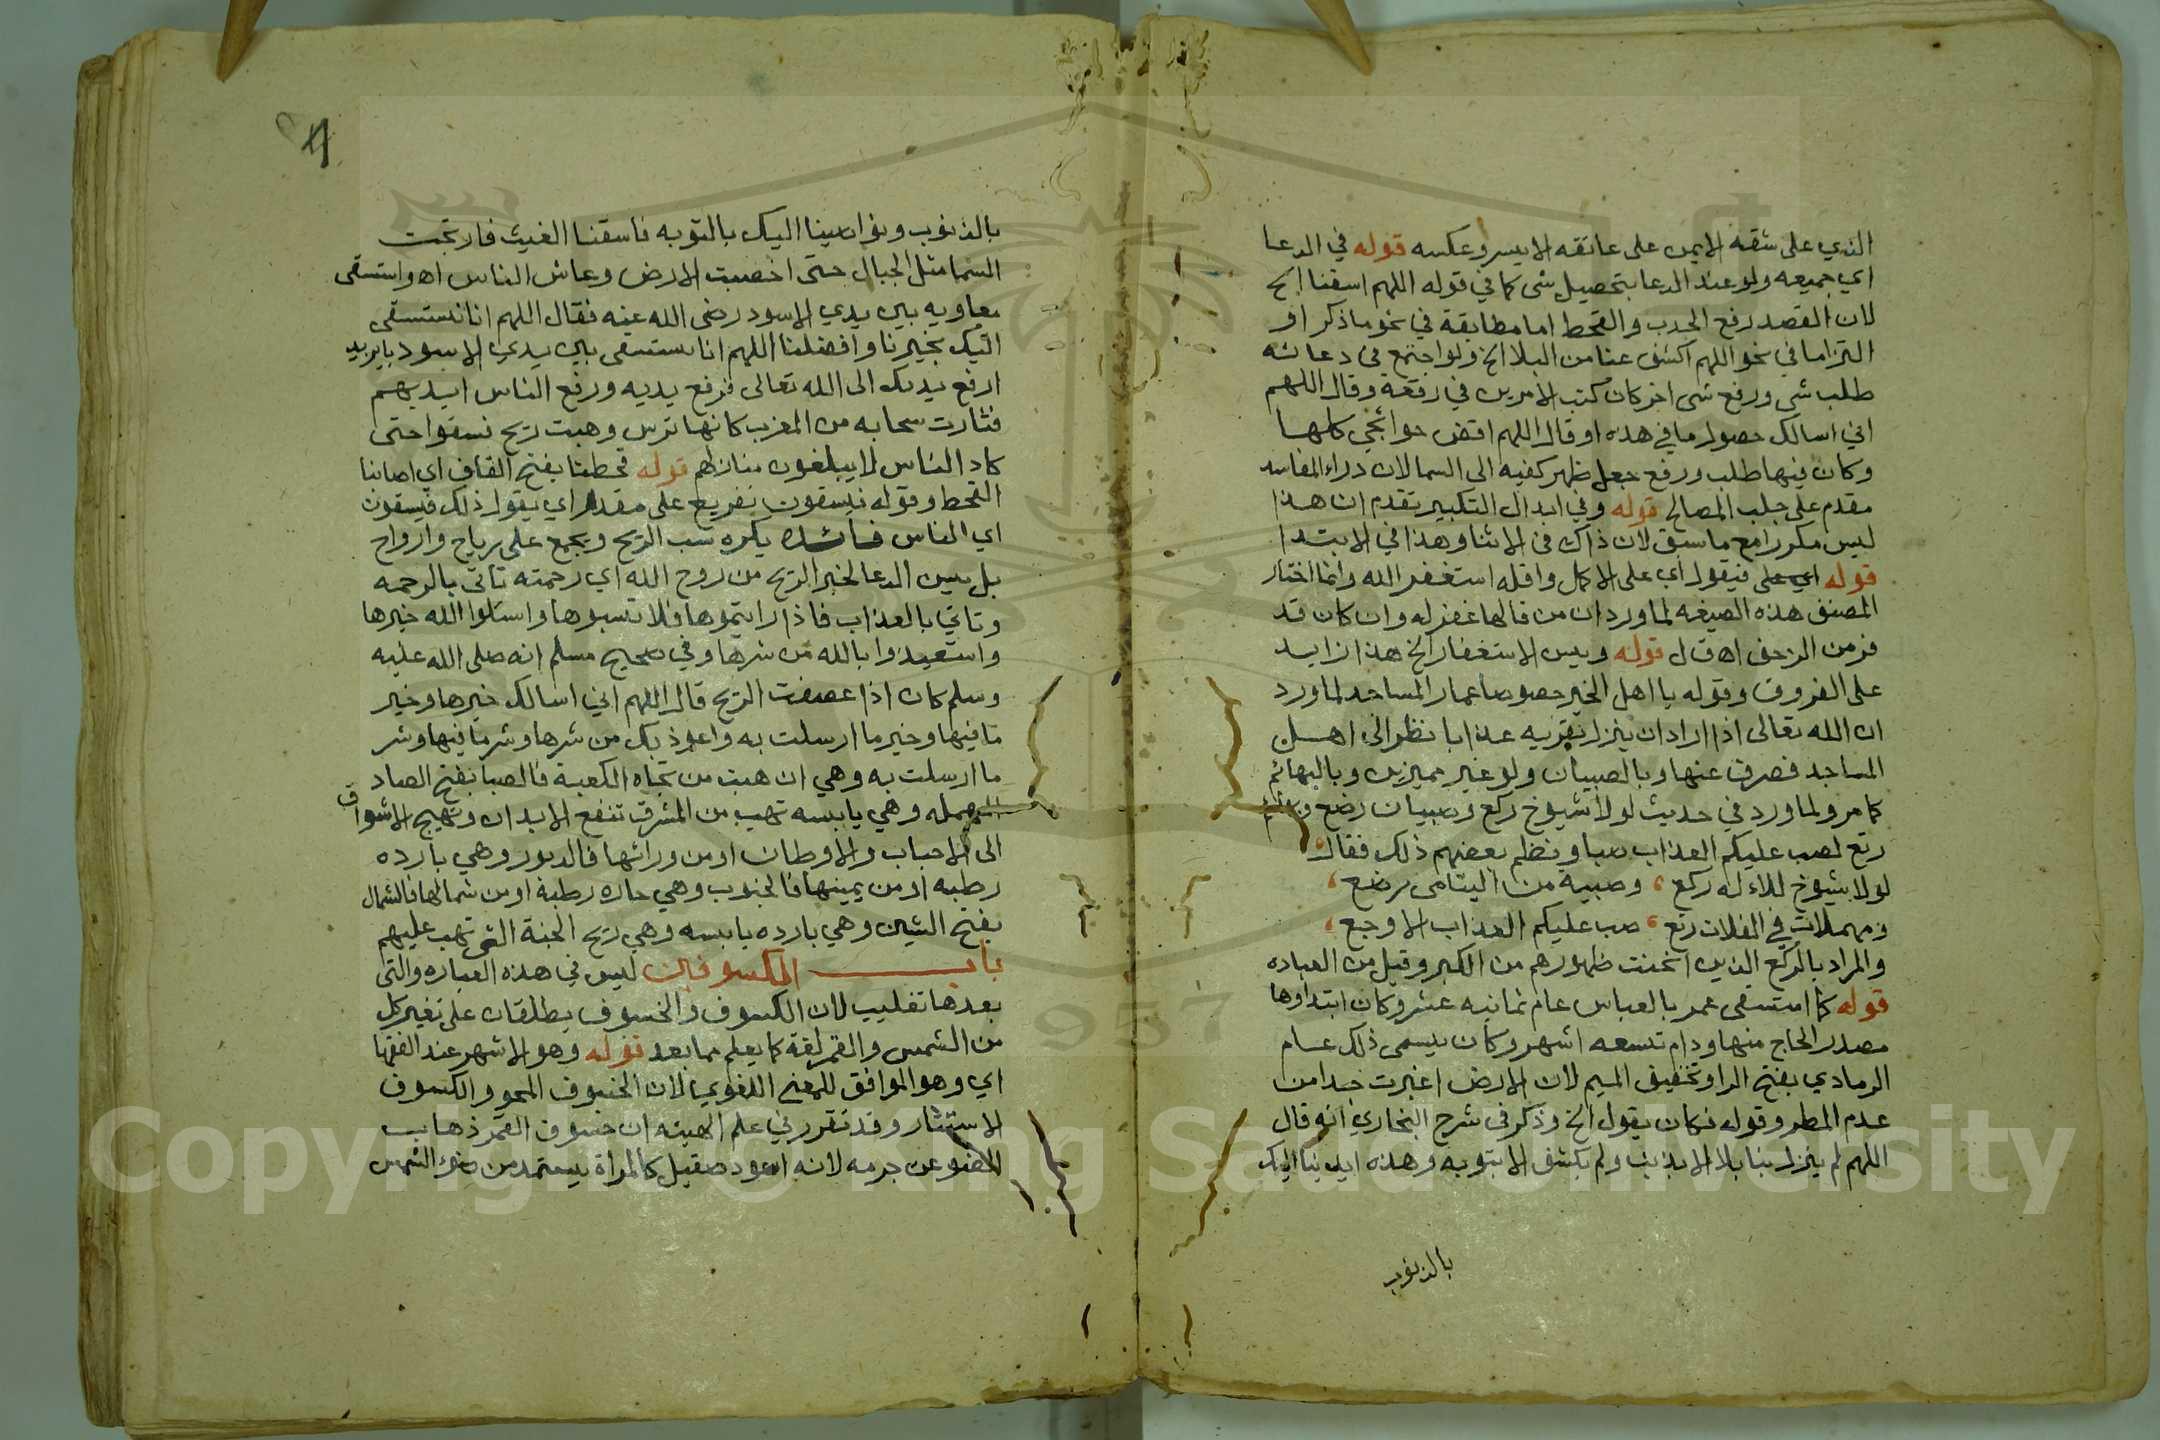 الذي على شقه الايمن على عاتقه الايسر وعكسه قوله في الدعا
اي جميعه ولو عند الدعا بتحصيل شى كما في قوله اللهم اسقنا الخ
لان القصد رفع الجدب والقحط اما مطابقة في نحو ما ذكر او
التزاما في نحو اللهم اكشف عنا من البلا الخ ولو اجتمع في دعائه
طلب شى ورفع شى اخر كان كتب الامرين في رقعة وقال اللهم
اني اسالك حصول ما في هذه او قال اللهم اقض حوائجي كلها
وكان فيها طلب ورفع جعل ظهر كفيه الى السما لان دراء المفاسد
مقدم على جلب المصالح قوله وفي ابدال التكبير تقدم ان هذا
ليس مكررا مع ما سبق لان ذاك في الاثنا وهذا في الابتدا
قوله اي على فيقول اي على الاكمل واقله استغفر الله وانما اختار
المصنف هذه الصيغه لما ورد ان من قالها غفر له وان كان قد
فر من الزحف اه ق ل قوله ويسن الاستغفار الخ هذا زايد
على الفروق وقوله يا اهل الخير خصوصا عمار المساجد لما ورد
ان الله تعالى اذا اراد ان ينزل بقريه عذابا نظر الى اهل
المساجد فصرف عنها وبالصبيان ولو غير مميزين وبالبهائم
كما مر ولما ورد في حديث لولا شيوخ ركع وصبيان رضع وبهائم
رتع لصب عليكم العذاب صبا ونظم بعضهم ذلك فقال
لولا شيوخ للاله ركع ، وصبيه من اليتامى رضع ،
ومهملات في الفلات رتع ، صب عليكم العذاب الاوجع ،
والمراد بالركع الذين انحنت ظهورهم من الكبر وقيل من العباده
قوله كما استسقى عمر بالعباس عام ثمانيه عشر وكان ابتداوها
مصدر الحاج منها ودام تسعه اشهر وكان يسمى ذلك عام
الرمادي بفتح الرا وتخفيف الميم لان الارض اغبرت جدا من
عدم المطر وقوله فكان يقول الخ وذكر في شرح البخاري انه قال
اللهم لم ينزل بنا بلا الا بذنب ولم يكشف الا بتوبه وهذه ايدينا اليك
بالذنوب
بالذنوب ونواصينا اليك بالتوبه فاسقنا الغيث فارتجت
السما مثل الجبال حتى اخصبت الارض وعاش الناس اه واستسقى
معاويه بين يدي الاسود رضى الله عنه فقال اللهم انا نستسقى
اليك بخيرنا وافضلنا اللهم انا نستسقى بين يدي الاسود يا يزيد
ارفع يديك الى الله تعالى فرفع يديه ورفع الناس ايديهم
فثارت سحابه من المغرب كانها ترس وهبت ريح فسقوا حتى
كاد الناس لا يبلغون منازلهم قوله قحطنا بفتح القاف اي اصابنا
القحط وقوله فيسقون تفريع على مقدر اي يقول ذلك فيسقون
اي الناس فائده يكره سب الريح ويجمع على رياح وارواح
بل يسن الدعا لخبر الريح من روح الله اي رحمته تاتى بالرحمه
وتاتي بالعذاب فاذا رايتموها فلا تسبوها واسئلوا الله خيرها
واستعيذوا بالله من شرها وفي صحيح مسلم انه صلى الله عليه
وسلم كان اذا عصفت الريح قال اللهم اني اسالك خيرها وخير
ما فيها وخير ما ارسلت به واعوذ بك من شرها وشر ما فيها وشر
ما ارسلت به وهي ان هبت من تجاه الكعبة فالصبا بفتح الصاد
المهمله وهي يابسه تهب من المشرق تنفع الابدان وتهيج الاشواق
الى الاحباب والاوطان او من ورائها فالدبور وهي بارده
رطبه او من يمينها فالجنوب وهي حاره رطبة او من شمالها فالشمال
بفتح الشين وهي بارده يابسه وهي ريح الجنة التى تهب عليهم
باب الكسوفين ليس في هذه العباره والتى
بعدها تغليب لان الكسوف والخسوف يطلقان على تغير كل
من الشمس والقمر لغة كما يعلم مما بعد قوله وهو الاشهر عند الفقها
اي وهو الموافق للمعنى اللغوي لان الخسوف المحو والكسوف
الاستتار وقد تقرر في علم الهيئه ان خسوف القمر ذهاب
الضو عن جرمه لانه اسود صقيل كالمراة يستمد من ضوء الشمس
Copyright © King Saud University
1957